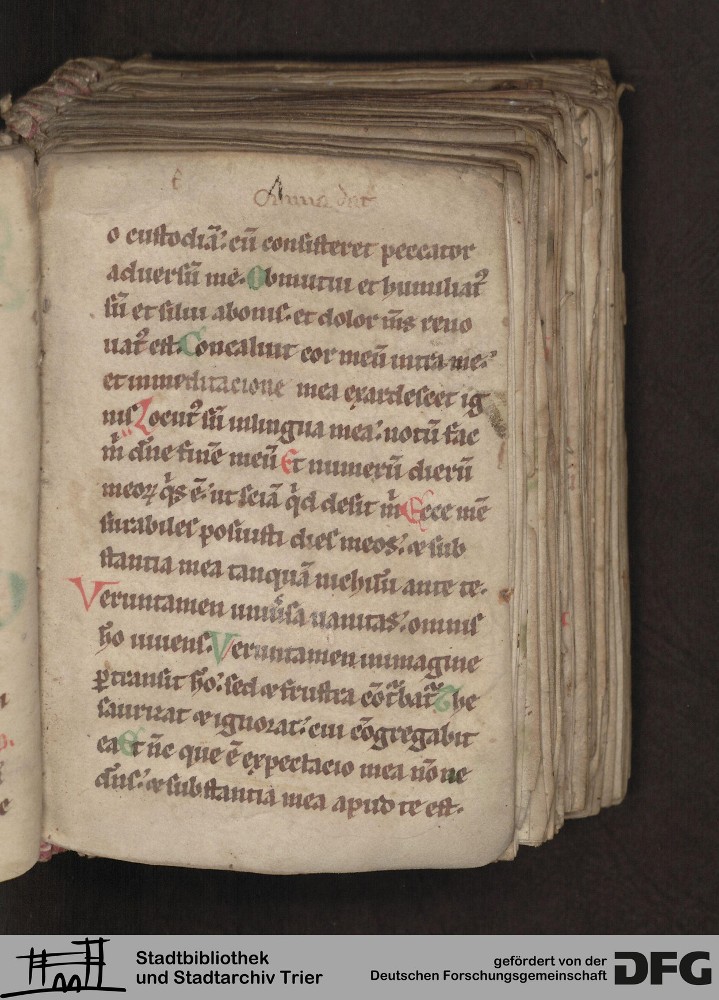 Anna dat
o custodiā: cū consisteret peccator
adversū me. Obmutui et humiliatꝰ
sū et silui abonis. et dolor mꝰs reno
uatꝰ est. Concaluit cor meū intra me:
et inmeditacione mea exardescet ig
nis Locutꝰ sū inlingua mea: notū fac
m̄ dn̄e finē meū Et numerū dierū
meoꝝ q̄s ē: ut sciā qͥd desit m̄ Ecce mē
surabiles posuisti dies meos: & sub
stantia mea tanquā nichilū ante te.
Veruntamen uniūsa uanitas: omnis
hō uiuens. Veruntamen inimagine
ꝑtransit hō: sed & frustra cōt̄bat̄ The
saurizat & ignorat: cui cōgregabit
ea Et n̄c que ē expectacio mea nōne
dn̄s: & substantia mea apud te est.
Stadtbibliothek
und Stadtarchiv Trier
gefördert von der
Deutschen Forschungsgemeinschaft
DFG